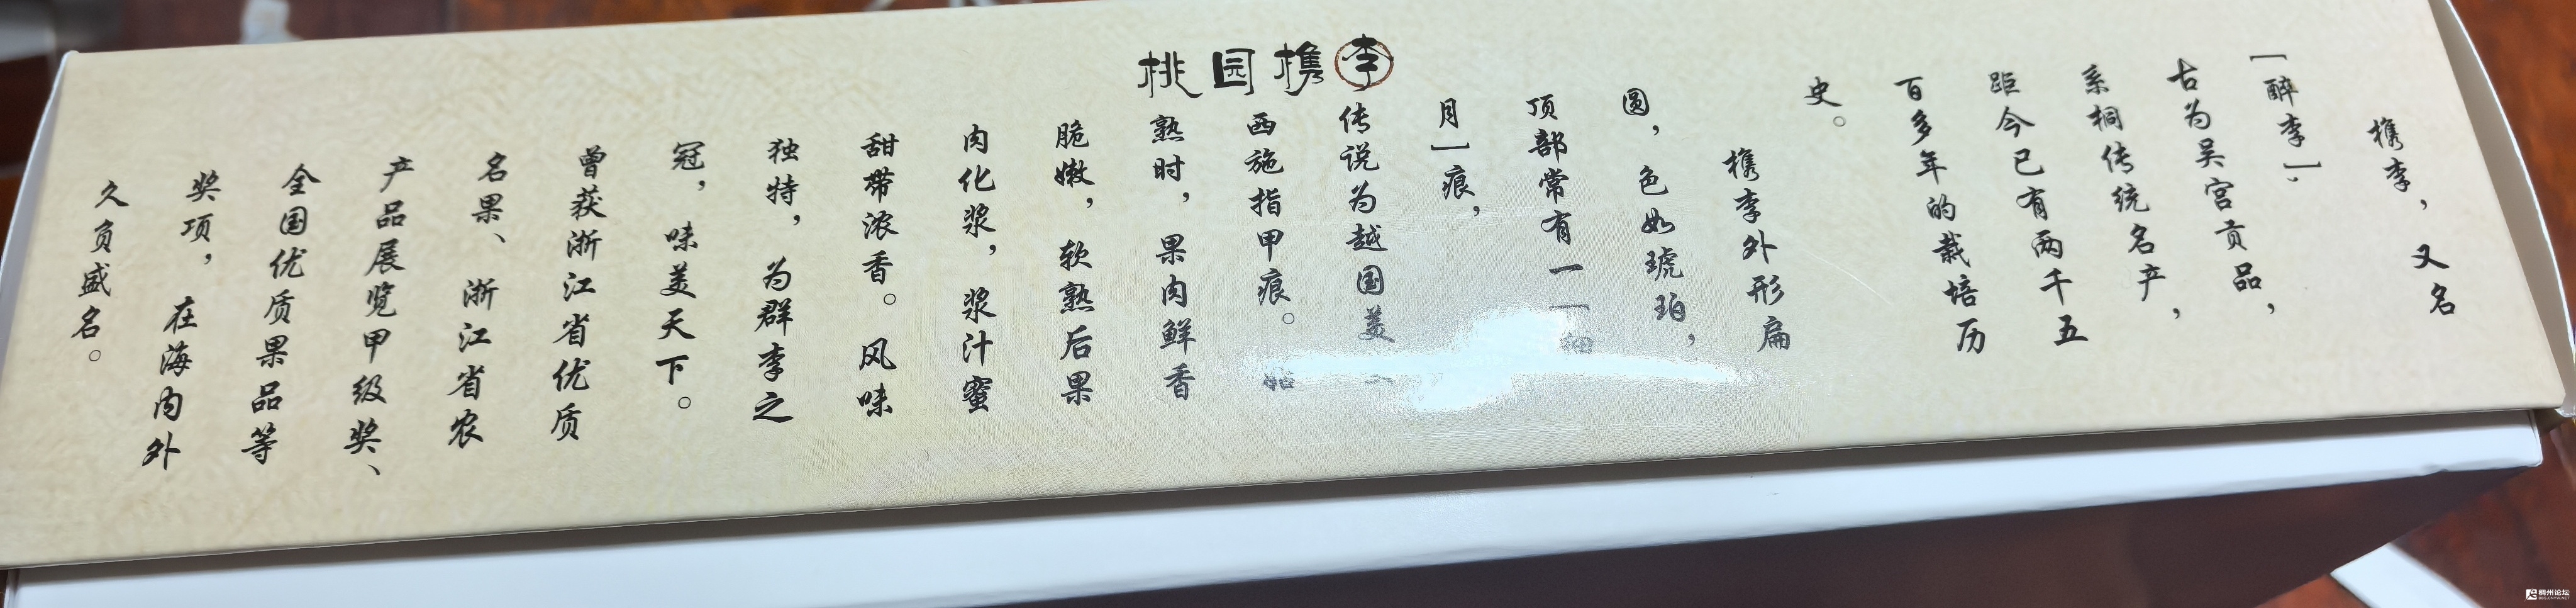 桃园槜李
槜李，又名
［醉李］.
古为吴宫贡品，
系桐传统名产，
距今已有两千五
百多年的栽培历
史。
槜李外形扁
圆，色如琥珀，
顶部常有一［细
月］痕，
传说为越国美
西施指甲痕。始
熟时，果肉鲜香
脆嫩，软熟后果
肉化浆，浆汁蜜
甜带浓香。风味
独特，为群李之
冠，味美天下。
曾获浙江省优质
名果、浙江省农
产品展览甲级奖、
全国优质果品等
奖项，在海内外
久负盛名。
稠州论坛